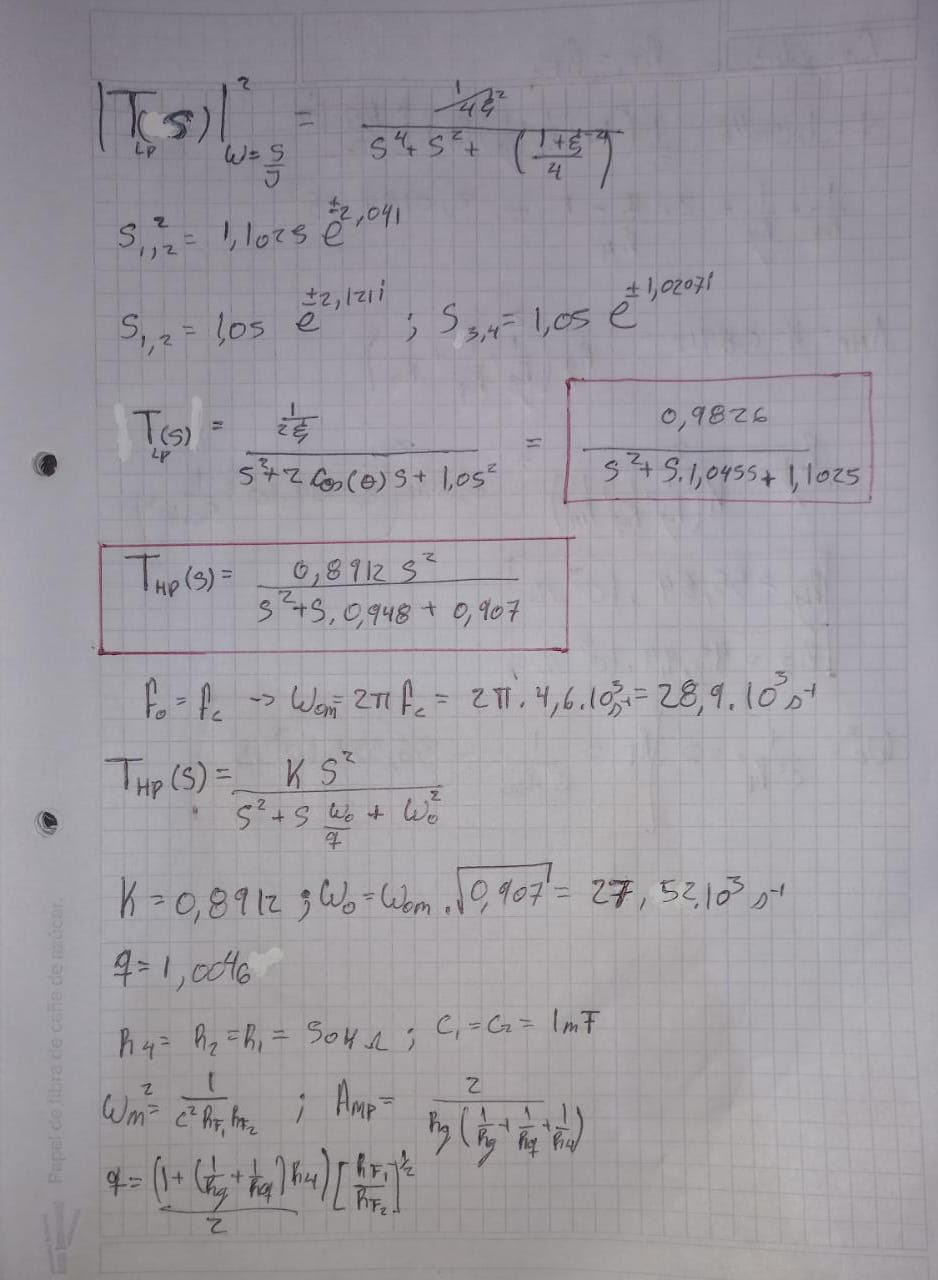 |T_LP(s)|²_{ω=s/J} = (1/4ξ²) / (s⁴ + s² + ((1+ξ⁻²)/4))
S_{1,2}² = 1,1025 e^{±2,041}
S_{1,2} = 1,05 e^{±2,121i} ; S_{3,4} = 1,05 e^{±1,0207i}
T_LP(s) = (1/2ξ) / (s² + 2 Cos(θ) s + 1,05²) = 0,9826 / (s² + s.1,0455 + 1,1025)
T_HP(s) = 0,8912 s² / (s² + s. 0,948 + 0,907)
f₀ = f_c → ω_om = 2π f_c = 2π . 4,6.10³ s⁻¹ = 28,9.10³ s⁻¹
T_HP(s) = K s² / (s² + s ω₀/q + ω₀²)
K = 0,8912 ; ω₀ = ω_om . √0,907 = 27,52.10³ s⁻¹
q = 1,0046
R4 = R2 = R1 = 50K Ω ; C1 = C2 = 1mF
ω_m² = 1 / (C² R_F1 R_F2) ; A_MP = 2 / (Rg (1/Rg + 1/Rq + 1/R4))
q = ((1 + (1/Rg + 1/Rq) R4) / 2) [R_F1 / R_F2]^{1/2}
Papel de fibra de caña de azúcar.